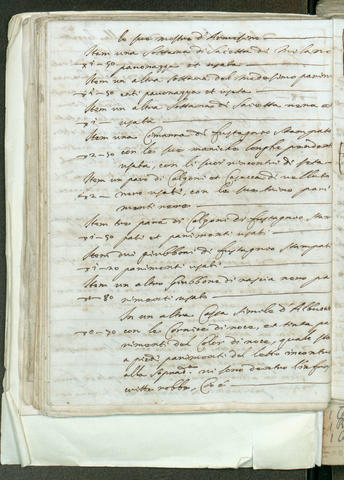 le sue mostre d'Armesino
Item una Sottana di Saietta di
x1-50 pavonazza et usata
Item un altra Sottana del medesimo panim
x1-50 pavonazza et usata
Item un altra Sottana di Saietta nera
x1- usata
Item una Cimarra di fustagno stampato
x2-50 con le sue maniche longhe pendenti
usata, con li suoi rincontri di seta
Item un paro di Calzoni et Casacca di velluto
x2- nero usati, con le pani
menti nove
Item tre para di Calzoni di fustagno stam
x1-50 pati et panimenti usati
Item dui giubboni di fustagno stampati
x1-20 panimenti usati
Item un altro Giubbone di rascia nera pa
80 rimenti usato
In un altra Cassa simile d'Albuccio
x0-70 con le Cornice di noce, et tinta pa
rimenti del Color di noce, quale sta
a piedi parimenti del letto rincontro
alla ni sono dentro l'infra
scritte robbe, Cioè